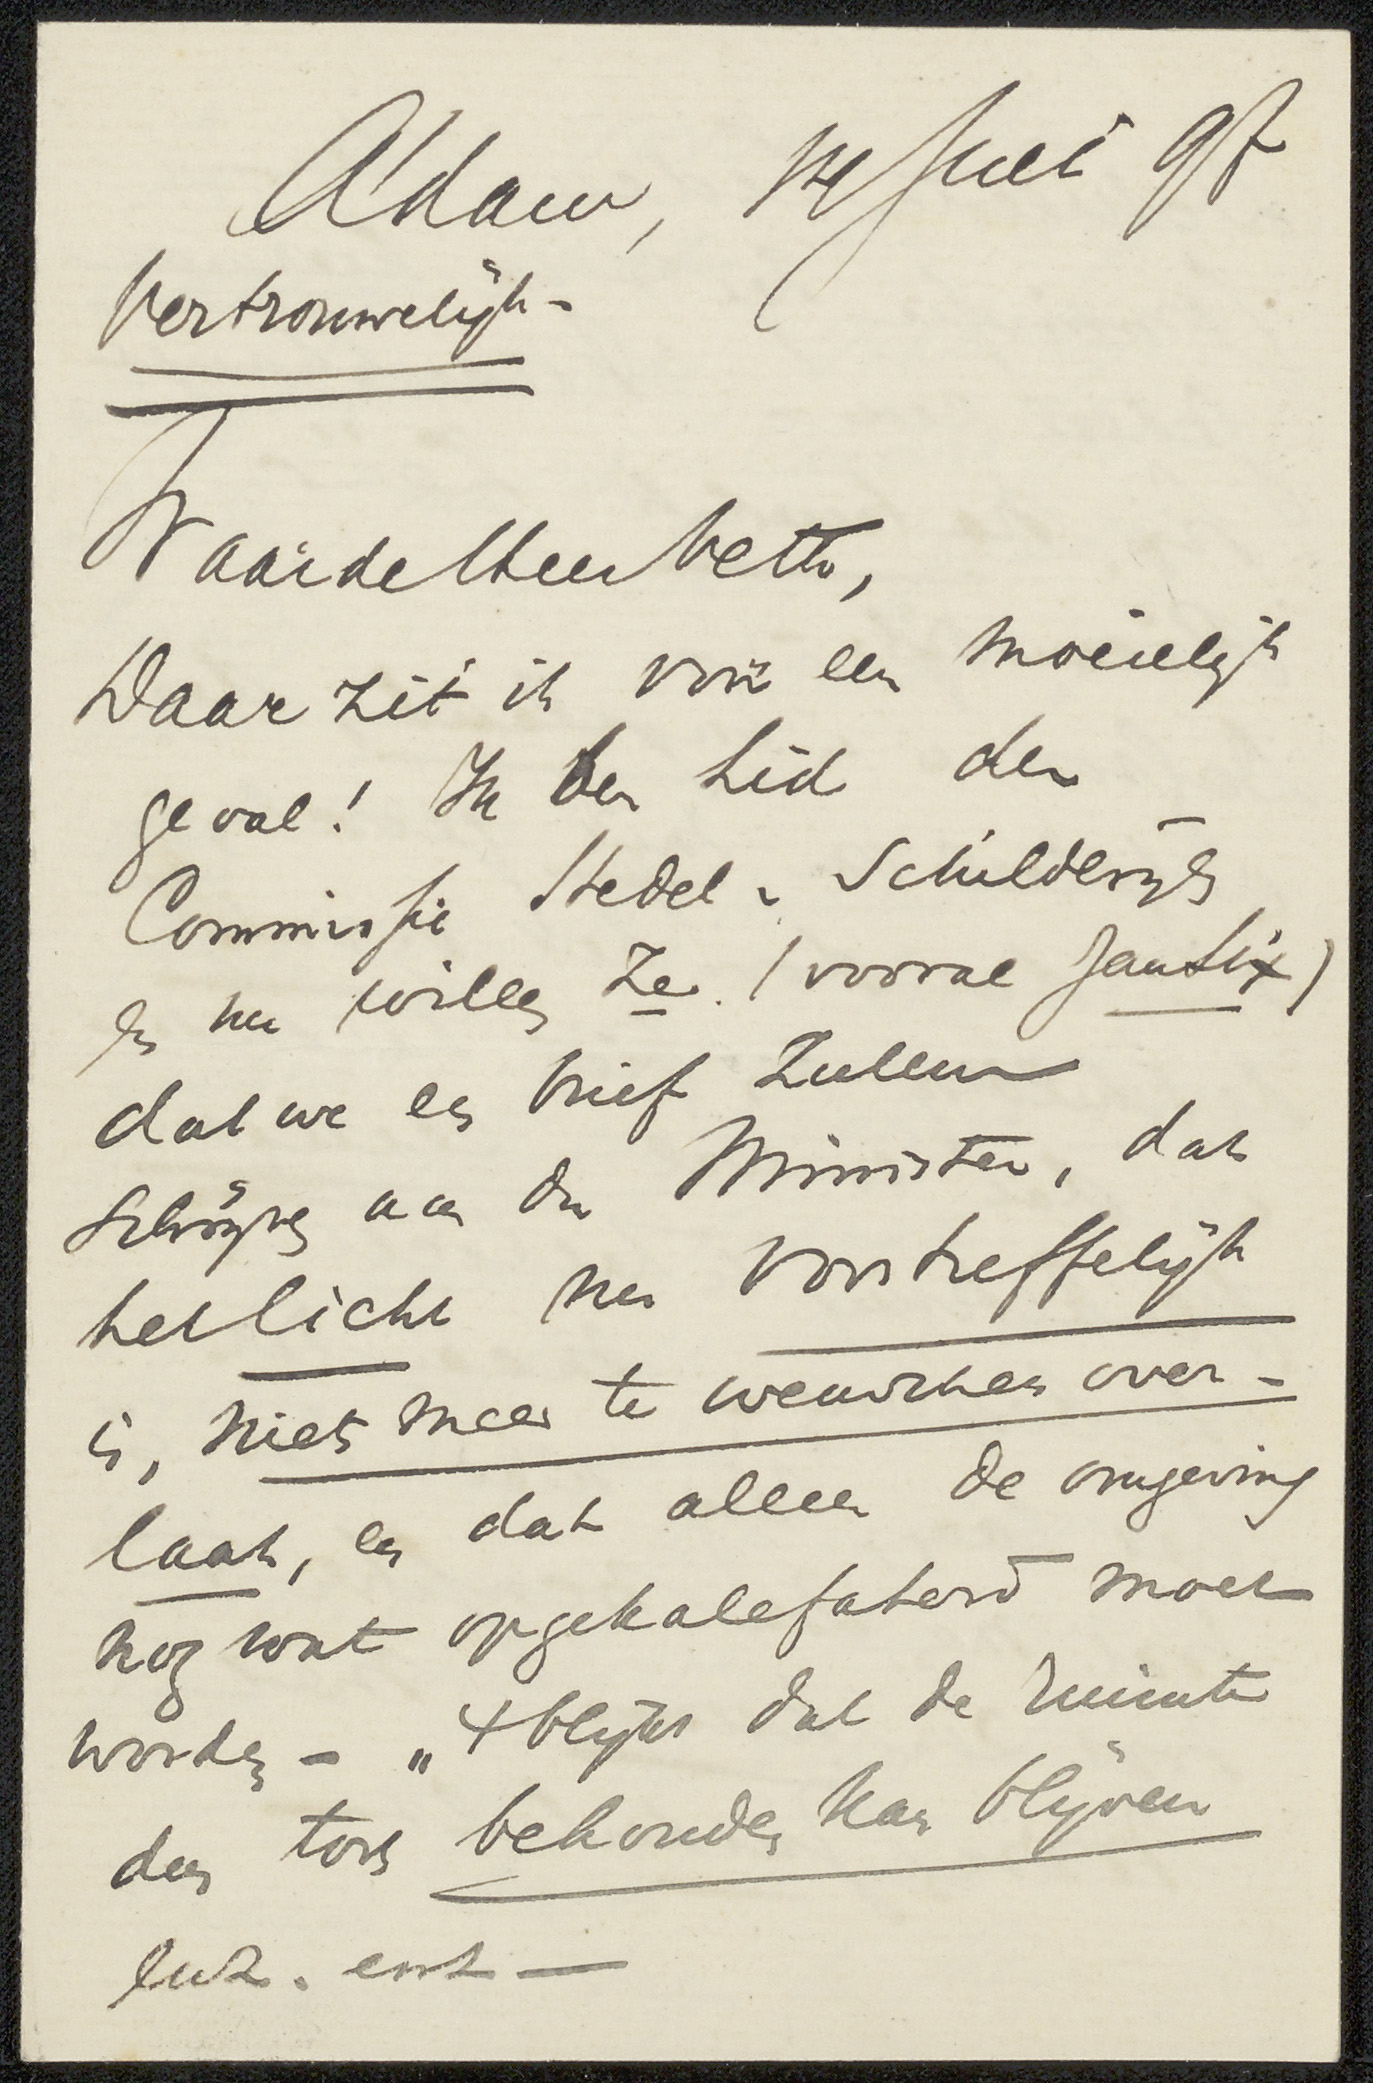 A'dam, Juli 97
Vertrouwelijk -
Waarde Heer Veth,
Daar zit ik voor een moeielijk
geval! Ik ben Lid der
Commissie Stedel. Schilderijen
En nu willen ze (vooral Jan Six)
dat we een brief zullen
schrijven aan den Minister, dat
het licht nu voortreffelijk
is, niets meer te wenschen over-
laat, en dat alleen de omgeving
nog wat opgekalefaterd moet
worden - „'t blijkt dat de ruimte
des tors behouden kan blijven
enz. enz —